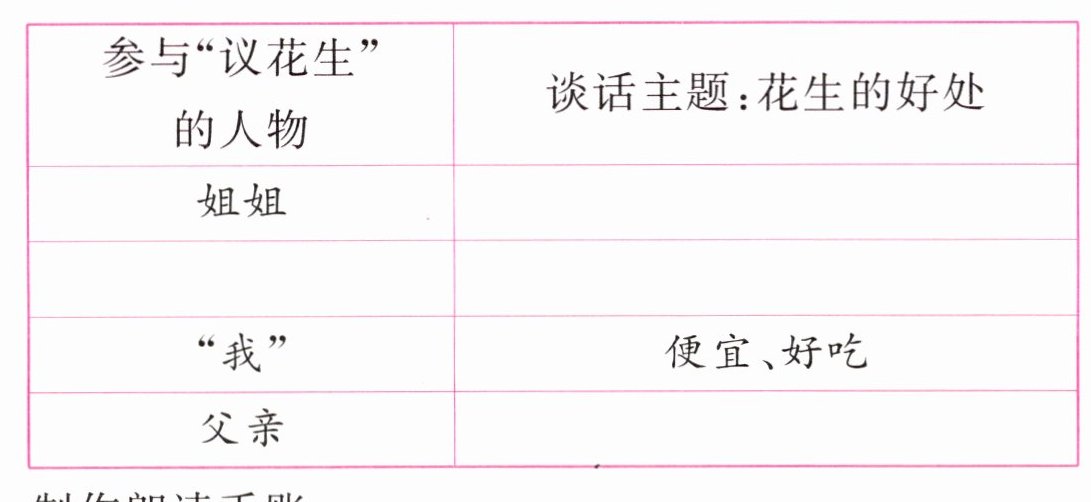 参与“议花生”
的人物
谈话主题：花生的好处
姐姐
“我”
便宜、好吃
父亲